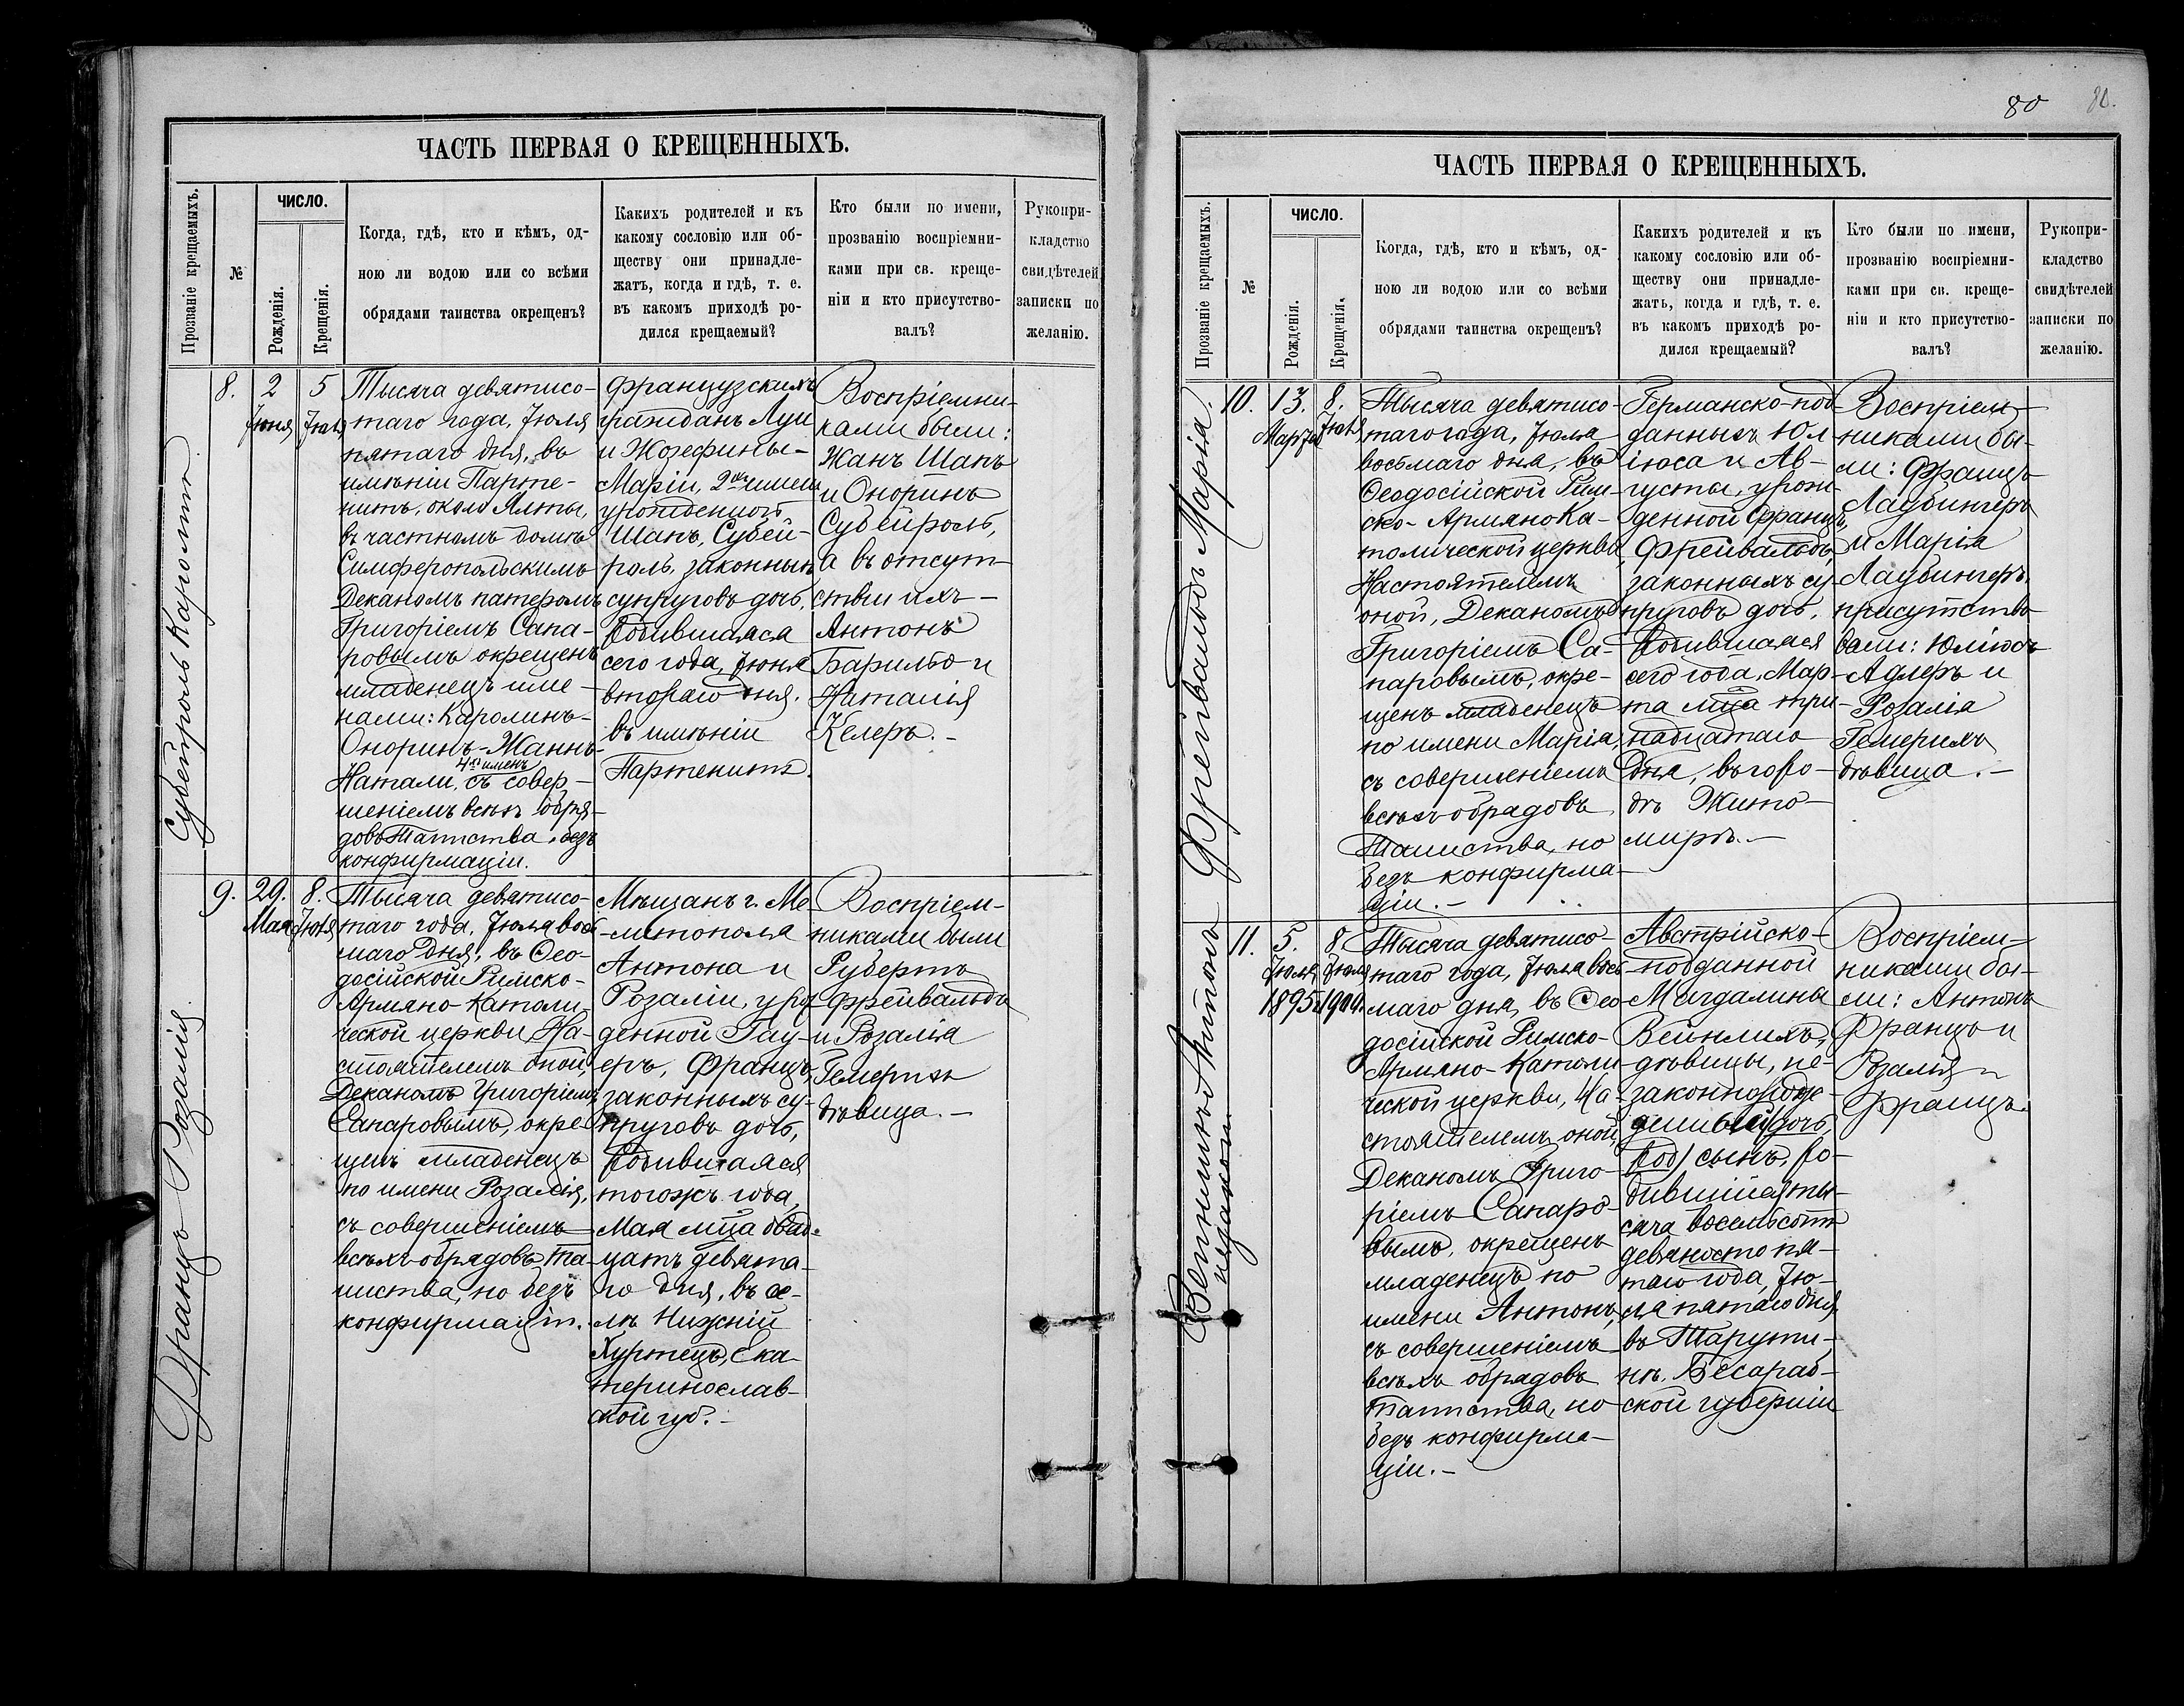 80 80.
ЧАСТЬ ПЕРВАЯ О КРЕЩЕННЫХЪ.
Прозваніе крещаемыхъ.
№
ЧИСЛО.
Рожденія.
Крещенія.
Когда, гдѣ, кто и кѣмъ, од-
ною ли водою или со всѣми
обрядами таинства окрещенъ?
Какихъ родителей и къ
какому сословію или об-
ществу они принадле-
жатъ, когда и гдѣ, т. е.
въ какомъ приходѣ ро-
дился крещаемый?
Кто были по имени,
прозванію воспріемни-
ками при св. креще-
ніи и кто присутство-
валъ?
Рукопри-
кладство
свидѣтелей
записки по
желанію.
Субейроль Каролина
8.
2
Іюня
5
Іюля
Тысяча девятисо-
таго года, Іюля
пятаго дня, въ
имѣніи Парте-
нитъ, около Ялты,
въ частномъ домѣ
Симферопольскимъ
Деканомъ патеромъ
Григоріемъ Сапа-
ровымъ окрещенъ
младенецъ име-
нами: Каролинъ-
Оноринъ-Жаннъ-
4хъ именъ
Натали, съ совер-
шеніемъ всѣхъ обря-
довъ Таинства, безъ
конфирмаціи.
Французскихъ
гражданъ Луи
и Жозефины-
Маріи, 2хъ именъ
урожденной
Шанъ, Субей-
роль, законныхъ
супруговъ дочь,
родившаяся
сего года, Іюня
второго дня.
въ имѣніи
Партенитъ.
Воспріемни-
ками были:
Жанъ Шанъ
и Оноринъ
Субейроль,
а въ отсут-
ствіи ихъ-
Антонъ
Барильо и
Наталія
Келеръ.-
Францъ Розалія
9.
29.
Мая
8.
Іюля
Тысяча девятисо-
таго года, Іюля вось
маго дня, въ Ѳео-
досійской Римско-
Армяно-Католи-
ческой церкви, На-
стоятелемъ оной,
Деканомъ Григоріемъ
Сапаровымъ, окре-
щенъ младенецъ
по имени Розалія,
съ совершеніемъ
всѣхъ обрядовъ та-
инства, но безъ
конфирмаціи.
Мѣщанъ г. Ме
-литополя
Антона и
Розаліи, урож
денной Гау-
еръ, Францъ,
законныхъ су-
пруговъ дочь,
родившаяся
тогожъ года,
Мая мца двад-
цать девята-
го дня, въ се-
лѣ Нижній
Хуртецъ, Ека-
теринослав-
ской губ.-
Воспріем-
никами были
Рубертъ
Фрейвальдъ
и Розалія
Гемерихъ
дѣвица.-
ЧАСТЬ ПЕРВАЯ О КРЕЩЕННЫХЪ.
Прозваніе крещаемыхъ.
№
ЧИСЛО.
Рожденія.
Крещенія.
Когда, гдѣ, кто и кѣмъ, од-
ною ли водою или со всѣми
обрядами таинства окрещенъ?
Какихъ родителей и къ
какому сословію или об-
ществу они принадле-
жатъ, когда и гдѣ, т. е.
въ какомъ приходѣ ро-
дился крещаемый?
Кто были по имени,
прозванію воспріемни-
ками при св. креще-
ніи и кто присутство-
валъ?
Рукопри-
кладство
свидѣтелей
записки по
желанію.
Фрейвальдъ Марія.
10.
13.
Марта
8.
Іюля
Тысяча девятисо-
таго года, Іюля
восьмаго дня, въ
Ѳеодосійской Рим-
ско-АрмяноКа-
толической церкви,
Настоятелемъ
оной, Деканомъ
Григоріемъ Са-
паровымъ, окре-
щенъ младенецъ
по имени Марія,
съ совершеніемъ
всѣхъ обрядовъ
Таинства, но
безъ конфирма-
ціи.-
Германско-под-
данныхъ Юл-
іюса и Ав-
густы, урож-
денной Францъ,
Фрейвальдъ,
законныхъ су-
пруговъ дочь,
родившаяся
сего года, Мар-
та мца три-
надцатаго
дня, въ горо-
дѣ Жито-
мирѣ.-
Воспріем-
никами бы-
ли: Францъ
Лаубингеръ
и Марія
Лаубингеръ,
присутство
вали: Юліюсъ
Адлеръ и
Розалія
Гемерихъ
дѣвица.-
Антонъ
незакон.
11.
5.
Іюля
1895
8.
Іюля
1900.
Тысяча девятисо-
таго года, Іюля вось
маго дня, въ Ѳео-
досійской Римско-
Армяно-Католи
ческой церкви, На-
стоятелемъ оной,
Деканомъ Григо-
ріемъ Сапаро-
вымъ, окрещенъ
младенецъ по
имени Антонъ,
съ совершеніемъ
всѣхъ обрядовъ
таинства, но
безъ конфирма-
ціи.-
Австрійско-
-подданной
Магдалины
Вейнлихъ,
дѣвицы, не-
законнорож-
денный (дочь,
род) сынъ, ро-
дившійся ты-
сяча восемьсотъ
девяносто пя-
таго года, Ію-
ля пятаго дня,
въ Тарути-
нѣ, Бесараб-
ской губерніи
Воспріем-
никами бы-
ли: Антонъ
Францъ и
Розалія
Францъ.